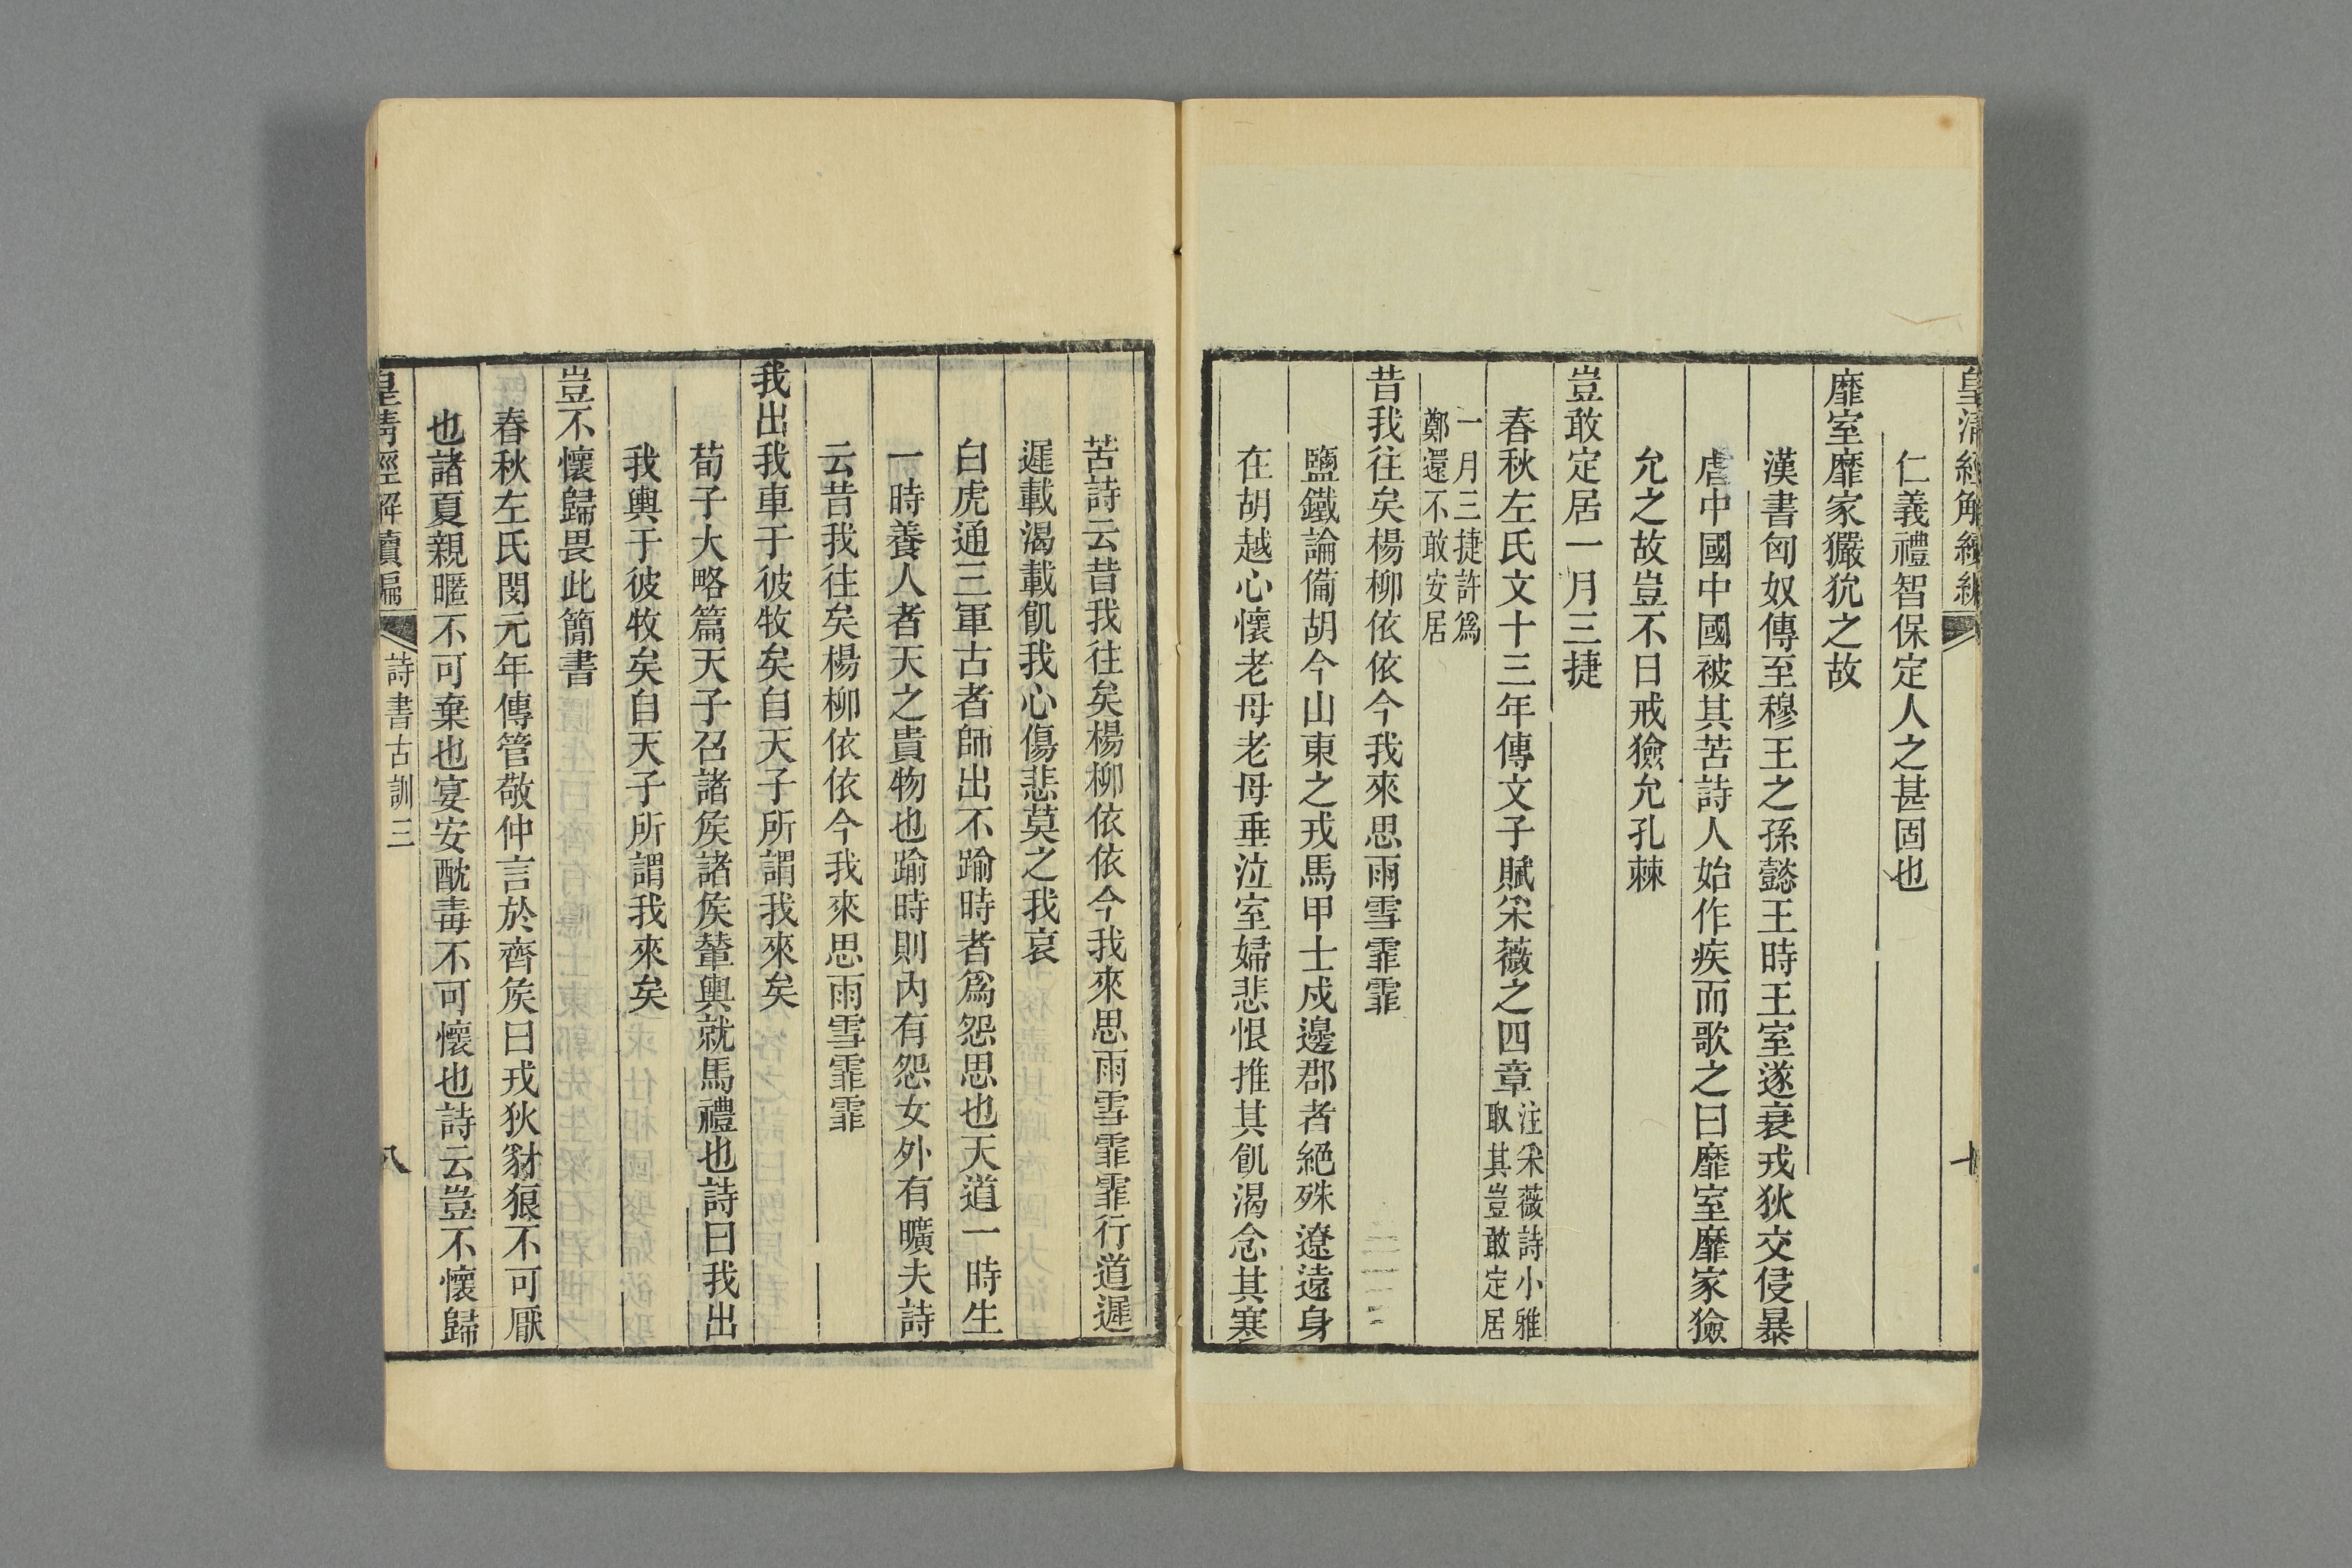 皇清經解續編
仁義禮智保定人之甚固也
靡室靡家玁狁之故
漢書匈奴傳至穆王之孫懿王時王室遂衰戎狄交侵暴
虐中國中國被其苦詩人始作疾而歌之曰靡室靡家獫
允之故豈不日戒獫允孔棘
豈敢定居一月三捷
春秋左氏文十三年傳文子賦采薇之四章注采薇詩小雅取其豈敢定居
一月三捷許爲鄭還不敢安居
昔我往矣楊柳依依今我來思雨雪霏霏
鹽鐵論備胡今山東之戎馬甲士戍邊郡者絕殊遼遠身
在胡越心懷老母老母垂泣室婦悲恨推其飢渴念其寒
苦詩云昔我往矣楊柳依依今我來思雨雪霏霏行道遲
遲載渴載飢我心傷悲莫之我哀
白虎通三軍古者師出不踰時者爲怨思也天道一時生
一時養人者天之貴物也踰時則內有怨女外有曠夫詩
云昔我往矣楊柳依依今我來思雨雪霏霏
我出我車于彼牧矣自天子所謂我來矣
荀子大略篇天子召諸矦諸矦輦輿就馬禮也詩曰我出
我輿于彼牧矣自天子所謂我來矣
豈不懷歸畏此簡書
春秋左氏閔元年傳管敬仲言於齊矦曰戎狄豺狼不可厭
也諸夏親暱不可棄也宴安酖毒不可懷也詩云豈不懷歸
皇清經解續編 詩書古訓三 八